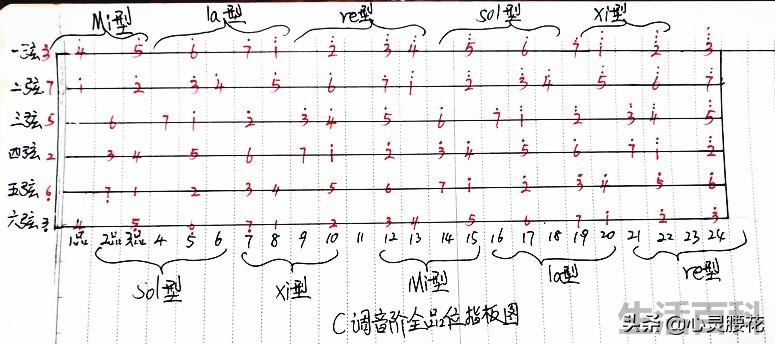 Mi型 la型 re型 sol型 xi型
一弦 3 4 5 6 7 1 2 3 4 5 6 7 1 2 3
二弦 7 1 2 3 4 5 6 7 1 2 3 4 5 6 7
三弦 5 6 7 1 2 3 4 5 6 7 1 2 3 4 5
四弦 2 3 4 5 6 7 1 2 3 4 5 6 7 1 2
五弦 6 7 1 2 3 4 5 6 7 1 2 3 4 5 6
六弦 3 4 5 6 7 1 2 3 4 5 6 7 1 2 3
1品 2品 3品 4 5 6 7 8 9 10 11 12 13 14 15 16 17 18 19 20 21 22 23 24
sol型 xi型 Mi型 la型 re型
C调音阶全品位指板图
生活百科
头条 @心灵腰花